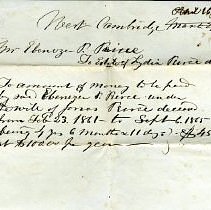 West Cambridge
Mr Ebenezer P. Peirce
To Estate of Lydia Peirce
To amount of money to be paid
by said Ebenezer P. Peirce under
Will of Jonas Peirce deceased
from Feb 23. 1861 to Sept 6. 1865
being 4 yrs 6 months 11 dys
at $100.00 pr year